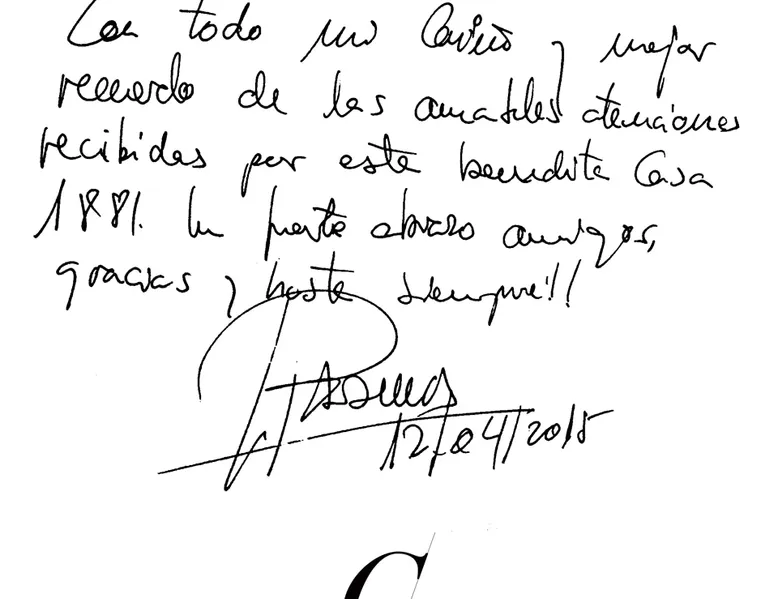 Con todo mi Cariño y mejor
recuerdo de las amables atenciones
recibidas por este bendita Casa
1881. Un fuerte abrazo amigos,
gracias y hasta siempre!!
12/04/2015
C